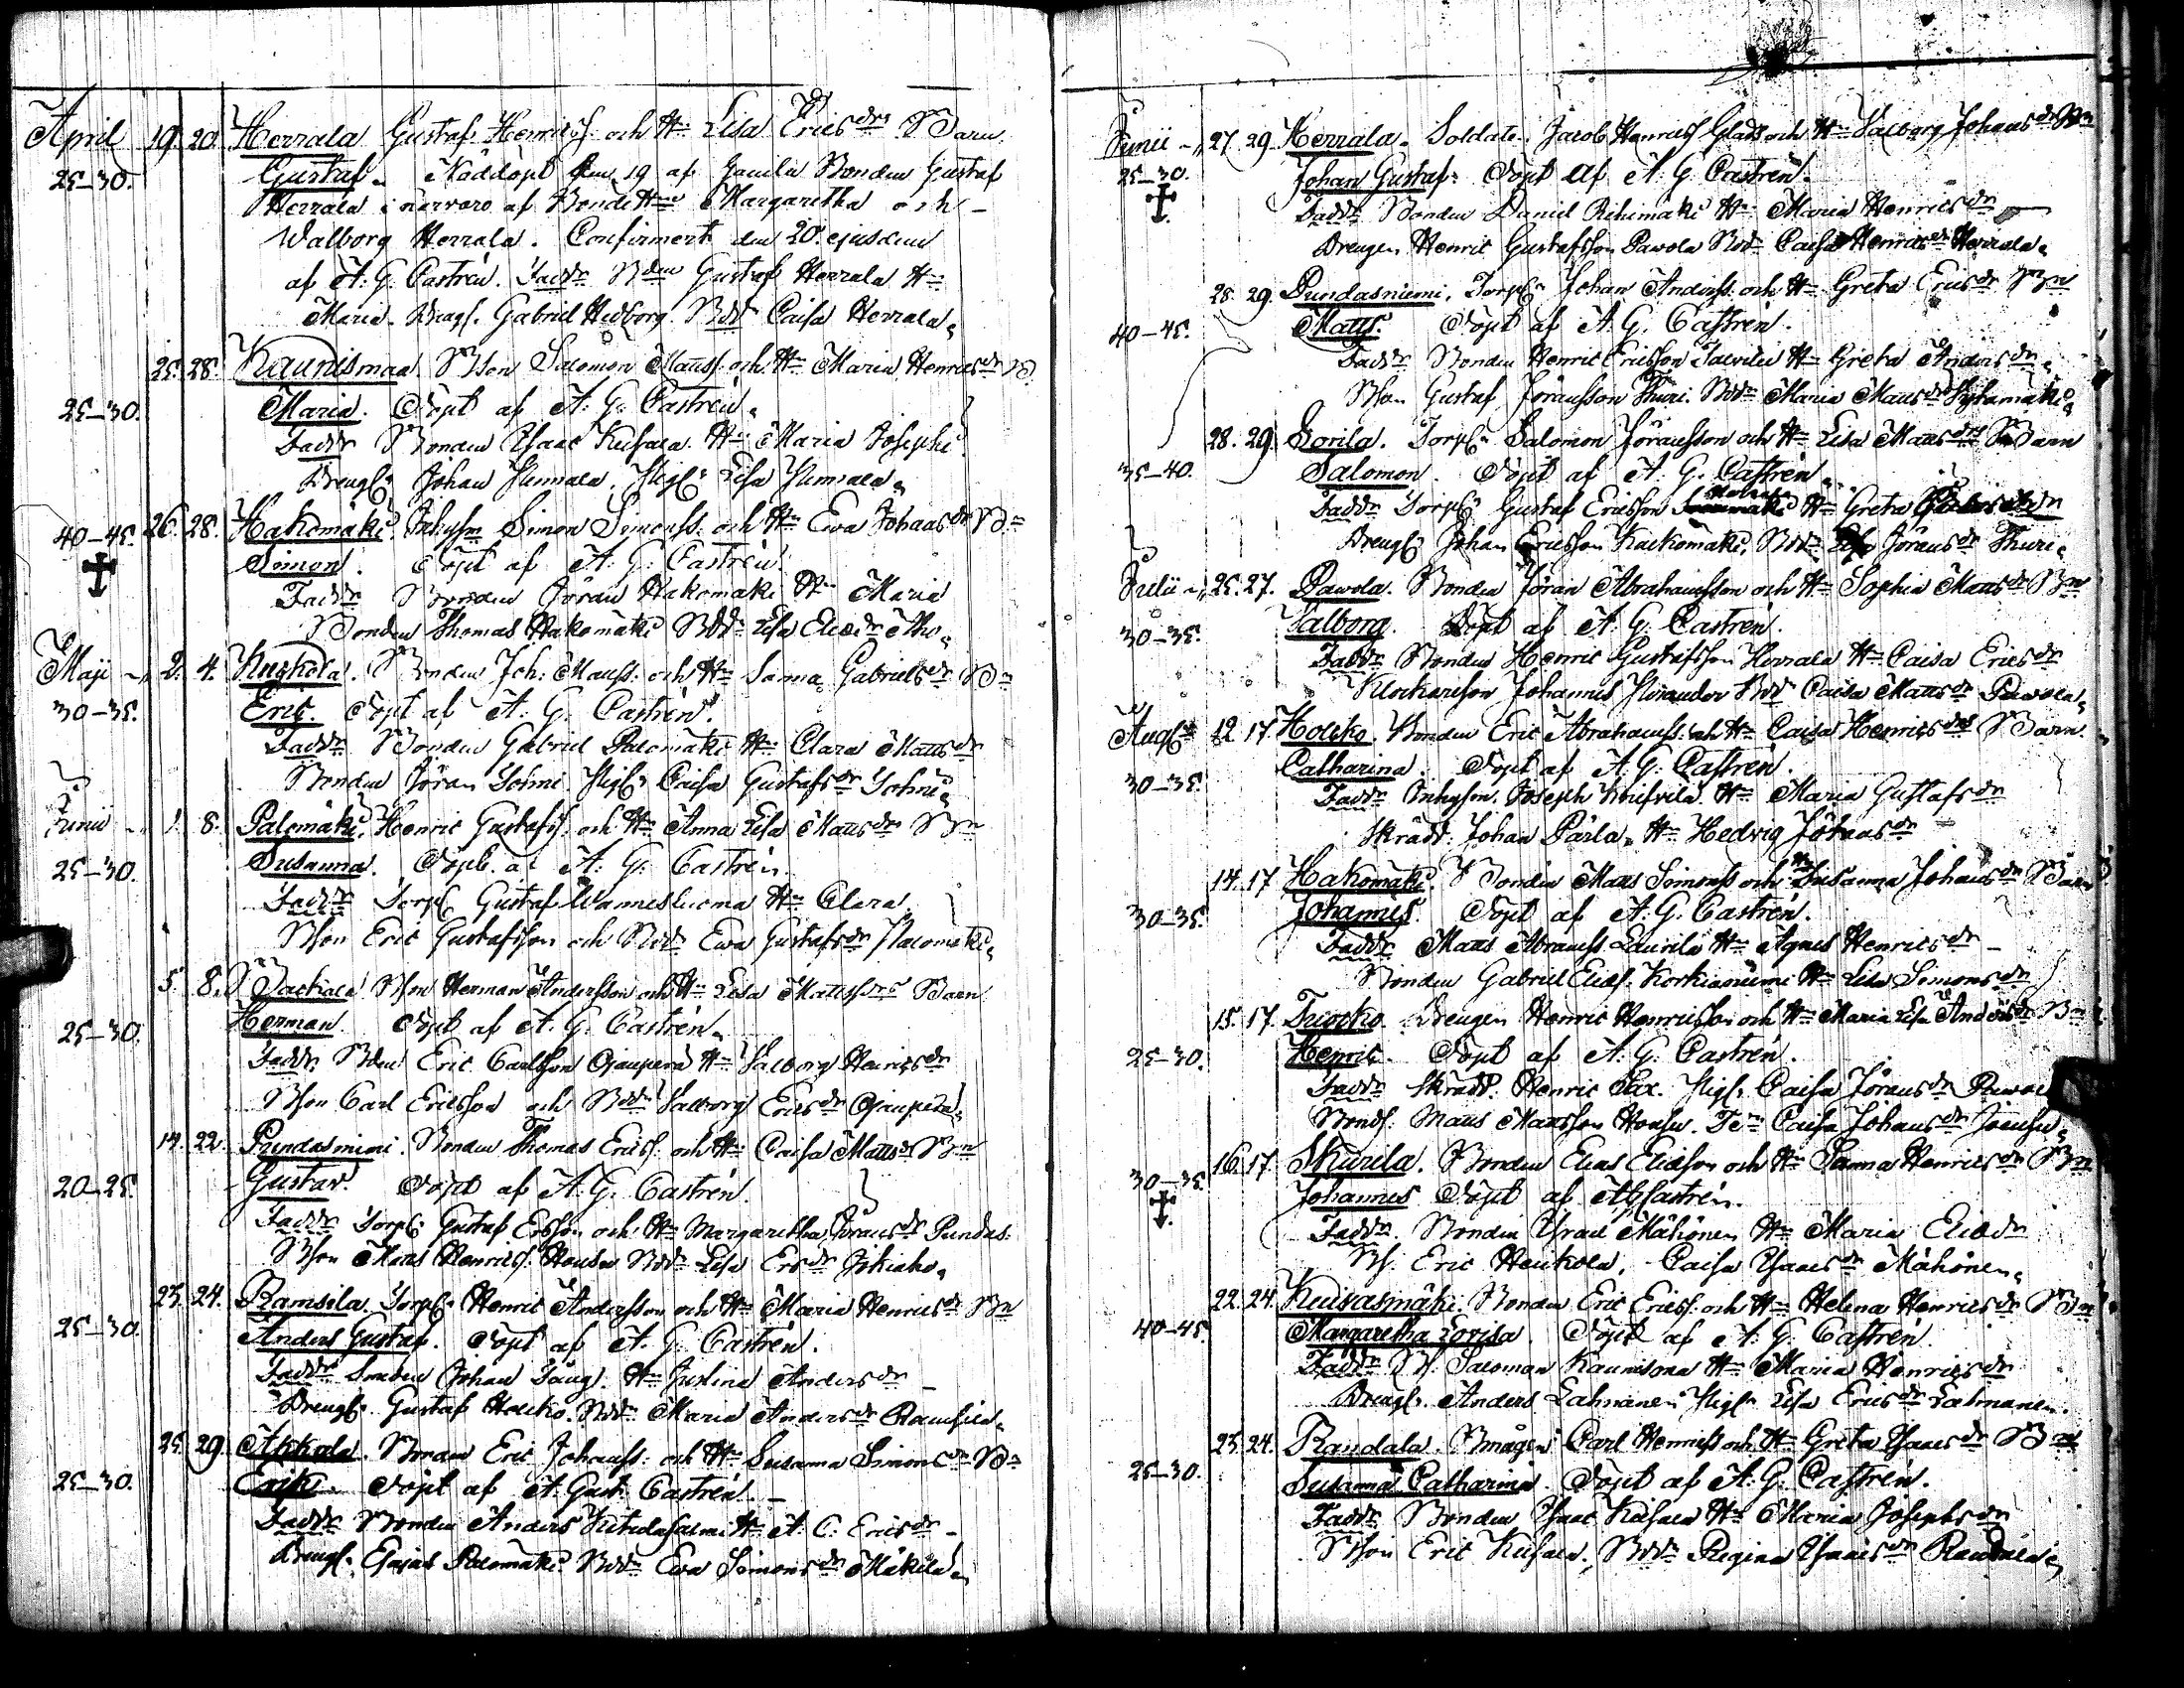 April 19. 20. Herrala Gustaf Henricss. och Hu Lisa Ericsdrs Barn
25-30. Gustaf. Nöddöpt den 19 af Gamla Bonden Gustaf
Herrala i närvaro af Bonde Hu Margaretha och
Walborg Herrala. Confirmert den 20. ejusdem
af A. G. Castrén. Faddr Bden Gustaf Herrala Hu
Maria. Gabriel Hedborg. Bdr Caisa Herrala.
25. 28. Kaunismaa Bson Salomon Matss. och Hu Maria Henricsdr B.
25-30. Maria. Döpt af A. G. Castrén.
Faddr Bonden Isaac Kuhala Hu Maria Josephs
Drengs. Johan Hem. Pigs. Lisa
40-45. 26. 28. Hakomäki. Inhyss. Simon Simonss. och Hu Ewa Johansdr Bn
Simon. Döpt af A. G. Castrén
Faddr Bonden Jöran Hakomäki Hu Maria
Bonden Thomas Hakomäki Bdr Lisa Eliædr
Maji 2. 4. Knuhola. Bonden Joh. Matss. och Hu Sanna Gabrielsdr Bn
30-35. Eric. Döpt af A. G. Castrén.
Faddr Bonden Gabriel Palomäki Hu Clara Matsdr
Bonden Jöran Pigs. Caisa Gustafsdr
Junii 1. 8. Palomäki. Henric Gustafss. och Hu Anna Lisa Matsdr Bn
25-30. Susanna. Döpt af A. G. Castrén
Faddr Torps. Gustaf Hu Clara
Bson Eric Gustafsson och Bdr Ewa Gustafsdr Palomäki.
5. 8. Bson Herman Andersson och Hu Lisa Matssdrs Barn
25-30. Herman. Döpt af A. G. Castrén.
Faddr Bden Eric Carlsson Ojanperä Hu Valborg Henricsdr
Bson Carl Ericsson och Bdr Valborg Ericsdr Ojanperä.
14. 22. Pundasniemi. Bonden Thomas Ericss. och Hu Caisa Matsdr Bn
20-25. Gustav. Döpt af A. G. Castrén.
Faddr Torps. Gustaf Ersson och Hu Margaretha Jöransdr Pundas:
Bson Mats Henricss. Bdr Lisa Ersdr
23. 24. Ramsila. Torps. Henric Andersson och Hu Maria Henricsdr Bn
25-30. Anders Gustaf. Döpt af A. G. Castrén.
Faddr Johan Hu Justina Andersdr
Drengs. Gustaf Holcko. Bdr Maria Andersdr Ramsila.
25. 29. Akkala. Bonden Eric Johanss. och Hu Susanna Simonsdr Bn
25-30. Erik. Döpt af A. Gust. Castrén.
Faddr Bonden Anders Hu A. C. Ericsdr
Drengs. Esajas Palomäki. Bdr Ewa Simonsdr Mäkelä.
Junii 27. 29. Herrala. Soldaten Jacob Henricss Glads och Hu Valborg Johansdr Bn
25-30. Johan Gustaf. Döpt af A. G. Castrén.
Faddr Bonden Daniel Rihimäki Hu Maria Henricsdr
Drengen Henric Gustafsson Pawola Bdr Caisa Henricsdr Herrala.
28. 29. Pundasniemi. Torps. Johan Anderss. och Hu Greta Ericsdr Bn
40-45. Matts. Döpt af A. G. Castrén.
Faddr Bonden Henric Ericsson Hu Greta Andersdr
Bson Gustaf Jöransson Thuri. Bdr Maria Matsdr
28. 29. Lorila. Torps. Salomon Jöransson och Hu Lisa Matsdrs Barn
35-40. Salomon. Döpt af A. G. Castrén.
Faddr Torps. Gustaf Ericsson Hu Greta
Drengs. Johan Ericsson Kackomäki. Bdr Lisa Jöransdr Thuri.
Julii 25. 27. Pawola. Bonden Jöran Abrahamsson och Hu Sophia Matsdr Bn
30-35. Valborg. Döpt af A. G. Castrén.
Faddr Bonden Henric Gustafsson Herrala Hu Caisa Ericsdr
Klockareson Johannes Bdr Caisa Matsdr Pawola.
Augs. 12. 17. Holcko. Bonden Eric Abrahamss. och Hu Caisa Henricsdrs Barn
30-35. Catharina. Döpt af A. G. Castrén.
Faddr Inhyson. Joseph Hu Maria Gustafsdr
Skrädd. Johan Pärla. Hu Hedvig Johansdr
14. 17. Hakomäki. Bonden Mats Simonss och Hu Susanna Johansdr Barn
30-35. Johannes. Döpt af A. G. Castrén.
Faddr Mats Abramss. Laurila Hu Agnes Henricsdr
Bonden Gabriel Eliæs. Korkianiemi Hu Lisa Simonsdr
15. 17. Drengen Henric Henricsson och Hu Maria Lisa Andersdr Bn
25-30. Henric. Döpt af A. G. Castrén.
Faddr Skrädd. Henric Pax. Pigs. Caisa Jöransdr
Bonds. Mats Mattsson Caisa Johansdr
16. 17. Skurila. Bonden Elias Eliæson och Hu Sanna Henricsdr Bn
30-35. Johannes. Döpt af AGCastrén.
Faddr Bonden Israel Mähönen Hu Maria Eliædr
Bs. Eric Heickola. Caisa Isaacsdr Mähönen.
22. 24. Kuusasmäki. Bonden Eric Ericss. och Hu Helena Henricsdr Bn
40-45. Margaretha Lovisa. Döpt af A. G. Castrén.
Faddr Bs. Salomon Kaunismaa Hu Maria Henricsdr
Drengs. Anders Lahnanen Pigs. Lisa Ericsdr Lahnanen.
23. 24. Randala. Bmågen Carl Henricss och Hu Greta Isaacsdr Bn
25-30. Susanna Catharina. Döpt af A. G. Castrén.
Faddr Bonden Isaac Kuhala Hu Maria Josephsdr
Bson Eric Kuhala. Bdr Regina Isaacsdr Randala.